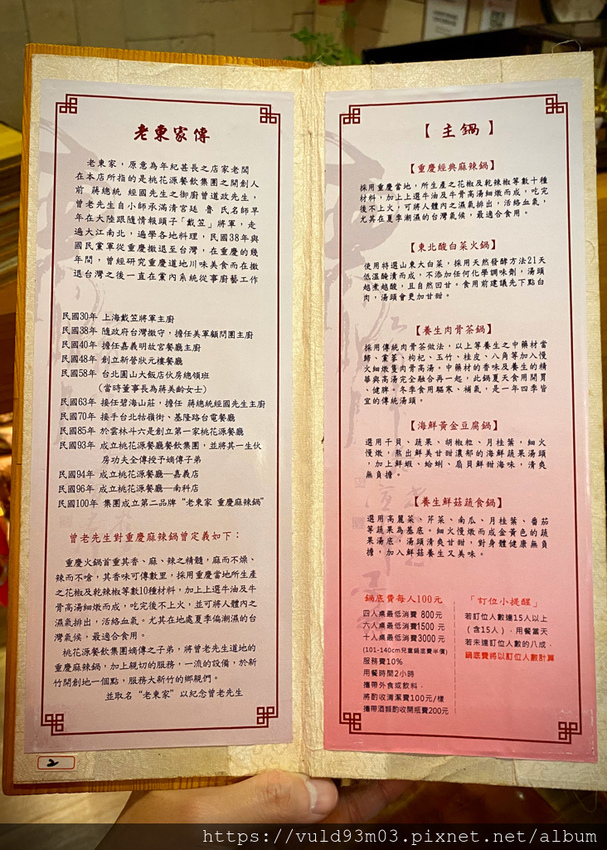 老東家傳
老東家，原意為年紀甚長之店家老闆
在本店所指的是桃花源餐飲集團之開創人
前 蔣總統 經國先生之御廚曾道政先生，
曾老先生自小師承滿清宮廷 魯 氏名師早
年在大陸跟隨情報頭子「戴笠」將軍，走
遍大江南北，遍學各地料理，民國38年與
國民黨軍從重慶撤退至台灣，在重慶的幾
年間，曾經研究重慶道地川味美食而在撤
退台灣之後一直在黨內系統從事廚藝工作
民國30年 上海戴笠將軍主廚
民國38年 隨政府台灣撤守，擔任美軍顧問團主廚
民國40年 擔任嘉義明故宮餐廳主廚
民國48年 創立新營狀元樓餐廳
民國58年 台北圓山大飯店伙房總領班
（當時董事長為蔣美齡女士）
民國63年 接任碧海山莊，擔任 蔣總統經國先生主廚
民國70年 接手台北牯嶺街、基隆路台電餐廳
民國85年 於雲林斗六是創立第一家桃花源餐廳
民國93年 成立桃花源餐廳餐飲集團，並將其一生伙
房功夫全傳授予嫡傳子弟
民國94年 成立桃花源餐廳—嘉義店
民國96年 成立桃花源餐廳—南科店
民國100年 集團成立第二品牌“老東家 重慶麻辣鍋”
曾老先生對重慶麻辣鍋曾定義如下：
重慶火鍋首重其香、麻、辣之精髓，麻而不燥、
辣而不嗆，其香味可傳數里，採用重慶當地所生產
之花椒及乾辣椒等數10種材料，加上上選牛油及牛
骨高湯細燉而成，吃完後不上火，並可將人體內之
濕氣排出，活絡血氣。尤其在地處夏季偏潮濕的台
灣氣候，最適合食用。
桃花源餐飲集團嫡傳之子弟，將曾老先生道地的
重慶麻辣鍋，加上親切的服務，一流的設備，於新
竹開創地一個點，服務大新竹的鄉親們。
並取名“老東家”以紀念曾老先生
2
【 主 鍋 】
【重慶經典麻辣鍋】
採用重慶當地，所生產之花椒及乾辣椒等數十種
材料，加上上選牛油及牛骨高湯細燉而成，吃完
後不上火，可將人體內之濕氣排出，活絡血氣，
尤其在夏季潮濕的台灣氣候，最適合食用。
【東北酸白菜火鍋】
使用特選山東大白菜，採用天然發酵方法21天
低溫醃漬而成，不添加任何化學調味劑，湯頭
越煮越酸，且自然回甘，食用前建議先下點白
肉，湯頭會更加甘甜。
【養生肉骨茶鍋】
採用傳統肉骨茶做法，以上等養生之中藥材當
歸、黨蔘、枸杞、玉竹、桂皮、八角等加入慢
火細燉隻肉骨高湯。中藥材的香味及養生的精
華與高湯完全融合再一起，此鍋夏天食用開胃
、健脾。冬季食用驅寒、補氣，是一年四季皆
宜的傳統湯頭。
【海鮮黃金豆腐鍋】
選用干貝、蔬果、胡椒粒、月桂葉，細火
慢燉，熬出鮮美甘甜濃郁的海鮮蔬果湯頭
，加上鮮蝦、蛤蜊、扇貝鮮甜海味，清爽
無負擔。
【養生鮮菇蔬食鍋】
選用高麗菜、芹菜、南瓜、月桂葉、番茄
等蔬果為基底。細火慢燉而成金黃色的蔬
果湯底。湯頭清爽甘甜，對身體健康無負
擔，加入鮮菇養生又美味。
鍋底費每人100元
四人桌最低消費 800元
六人桌最低消費1500 元
十人桌最低消費3000 元
(101-140cm兒童鍋底費半價)
服務費10%
用餐時間2小時
攜帶外食或飲料，
將酌收清潔費100元/樣
攜帶酒類酌收開瓶費200元
「訂位小提醒」
若訂位人數達15人以上
（含15人），用餐當天
若未達訂位人數的八成，
鍋底費將以訂位人數計算
https://vuld93m03.pixnet.net/album